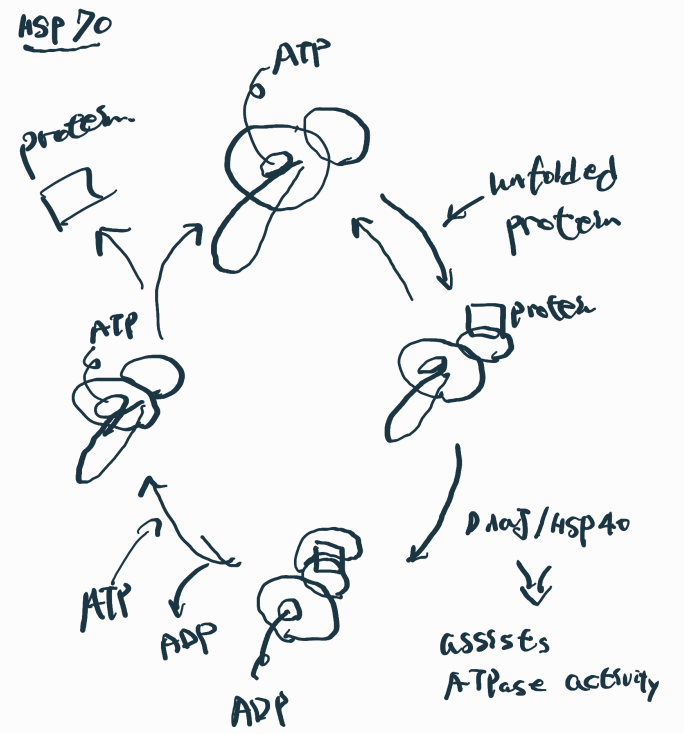 HSP 70
ATP
protein
unfolded
protein
protein
ATP
DnaJ/HSP40
assists
ATPase activity
ATP
ADP
ADP